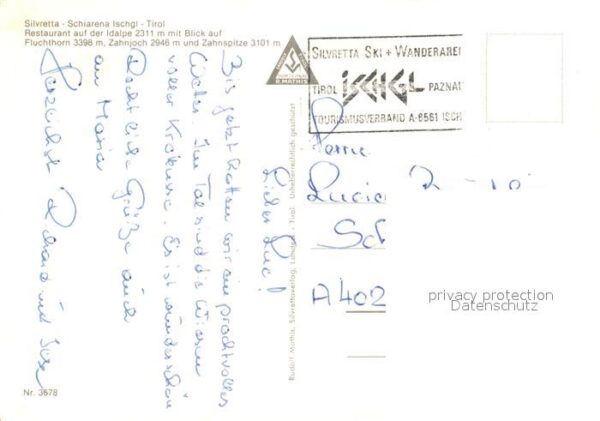 Silvretta - Schiarena Ischgl - Tirol
Restaurant auf der Idalpe 2311 m mit Blick auf
Fluchthorn 3398 m, Zahnjoch 2946 m und Zahnspitze 3101 m
R. MATHIS
SILVRETTA SKI + WANDERAREN
TIROL ISCHGL PAZNAUN
TOURISMUSVERBAND A-6561 ISCH
Liebe Luci!
Bis jetzt hatten wir ein prachtvolles
Wetter. Im Tal sind die Wiesen
voller Krokusse. Es ist wunderschön
Recht liebe Grüße auch
an Maria
Herzlichst
Rudolf Mathis, Silvrettaverlag, Landeck, Tirol. Urheberrechtlich geschützt
Lucia
Sch
A 402
privacy protection
Datenschutz
Nr. 3678